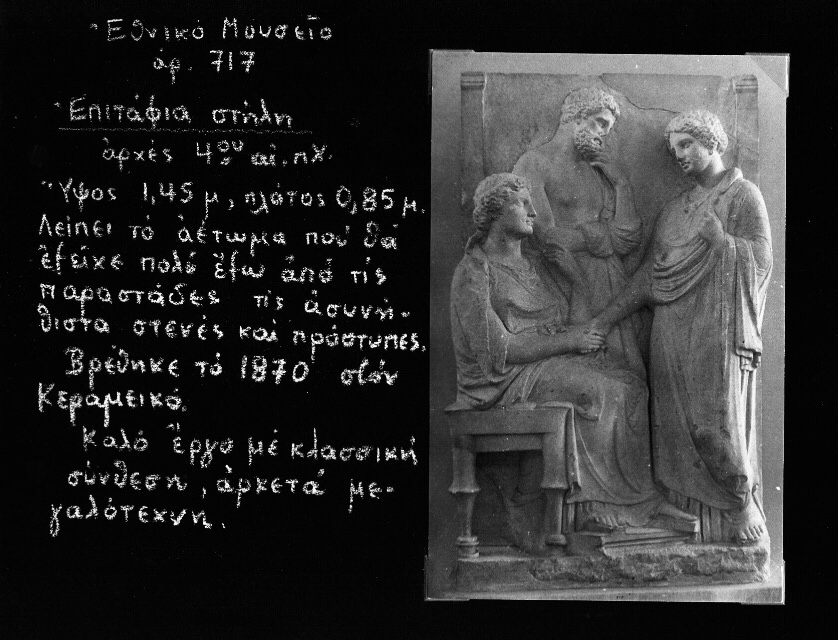 Ἐθνικό Μουσεῖο
ἀρ. 717
Ἐπιτάφια στήλη
ἀρχές 4ου αἰ. πΧ.
Ὕψος 1,45 μ, πλάτος 0,85 μ.
Λείπει τό ἀέτωμα πού θά
ἐξεῖχε πολύ ἔξω ἀπό τίς
παραστάδες τίς ἀσυνή-
θιστα στενές καί πρόστυπες.
Βρέθηκε τό 1870 στόν
Κεραμεικό.
Καλό ἔργο μέ κλασσική
σύνθεση, ἀρκετά με-
γαλότεχνη.